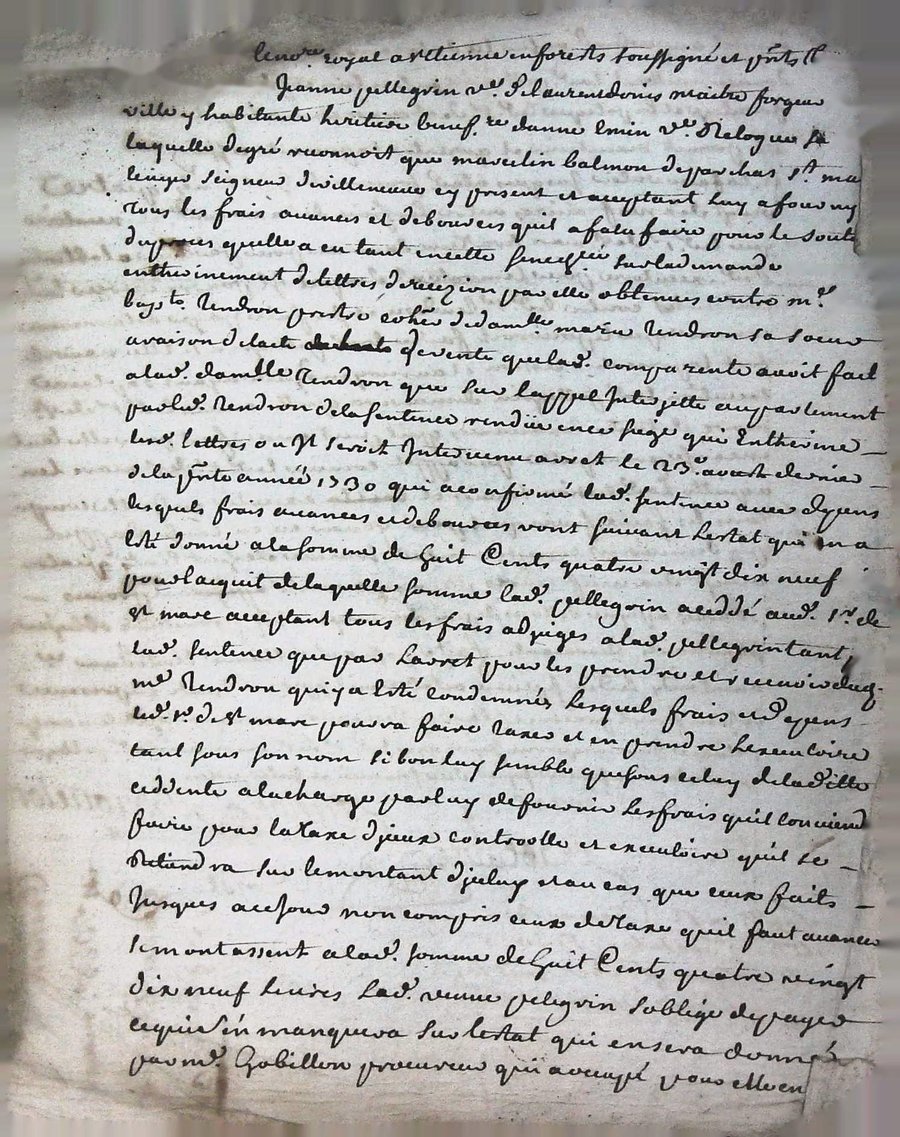 le no.re royal a st etienne en forests soussigné et p̃nts
Jeanne pellegrin v.e de laurent donis maitre forgeur
ville y habitante heritiere benef.re danne Emin v.e
laquelle degré reconnoit que marcelin balmon de parchas s.t ma
seigneur de villeneuve cy present et acceptant luy a fourny
tous les frais avances et debources quil a falu faire pour le soute
du proces quelle a eu tant en cette senec.ée sur la demande
entherinement de lettres de rezizion par elle obtenues contre m.e
bap.te Tendron prestre coher de dam.lle marie Tendron sa soeur
a raison de lacte de vente que lad. comparente avoit fait
a lad. dam.lle Tendron que sur lappel Interjetté au parlement
par led. Tendron de la sentence rendüe en ce siege qui Entherine
lesd. lettres ou Il seroit Intervenu arret le 23.e aoust dernier
de la p̃nte année 1730 qui a confirmé lad. sentence avec depens
lesquels frais avances et debources vont suivant lestat qui en a
Esté donné a la somme de huit Cents quatre vingt dix neuf
pour lacquit de laquelle somme lad. pellegrin a ceddé aud. s.r de
s.t marc acceptant tous les frais adjugés a lad. pellegrin tant
lad. sentence que par Larret pour les prendre et recevoir dud.
m.e Tendron qui y a Esté condemnés Lesquels frais et depens
led. s.r de s.t marc pourra faire taxer et en prendre Lexecutoire
tant sous son nom si bon luy semble que sous celuy de lad.
ceddente a la charge par luy de fournir Les frais quil conviend
faire pour la taxe djceux controolle et executoire quil se
Retiendra sur le montant djceluy et au cas que ceux faits
Jusques a ce Jour non compris ceux de taxe quil faut avancer
se montassent a lad. somme de huit Cents quatre vingt
dix neuf Livres Lad. veuve pelegrin soblige de payer
ce qui sen manquera sur lestat qui en sera donné
par m.e Gobillon procureur qui a occupé pour elle en